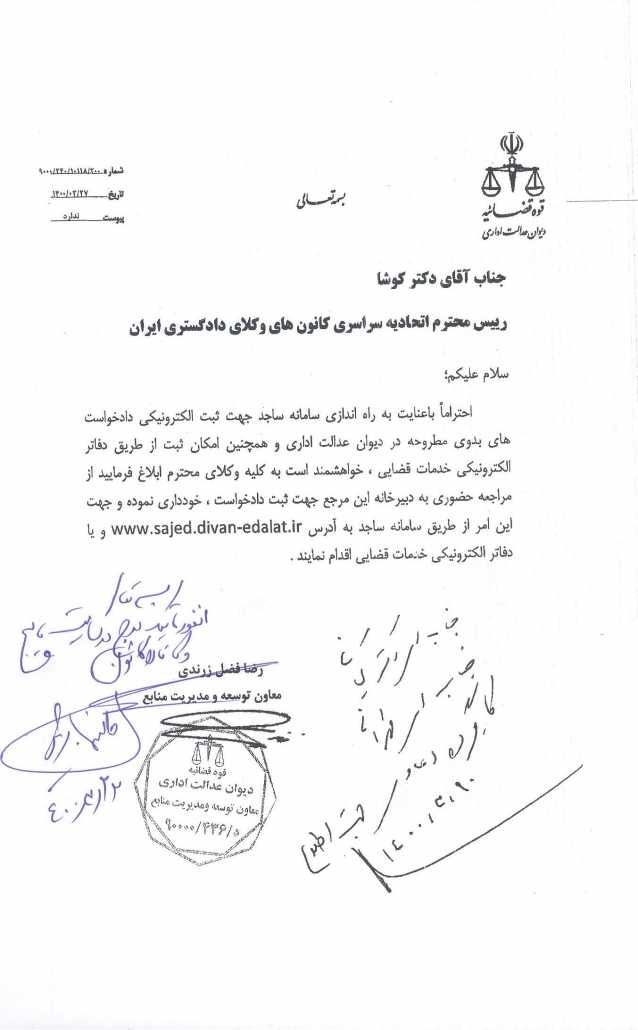 قوه قضائیه
دیوان عدالت اداری
بسمه تعالی
شماره ۹۰۰۰/۲۴۰/۱۰۱۱۸/۲۰۰
تاریخ ۱۴۰۰/۰۲/۲۷
پیوست ندارد
جناب آقای دکتر کوشا
رییس محترم اتحادیه سراسری کانون های وکلای دادگستری ایران
سلام علیکم؛
احتراماً باعنایت به راه اندازی سامانه ساجد جهت ثبت الکترونیکی دادخواست
های بدوی مطروحه در دیوان عدالت اداری و همچنین امکان ثبت از طریق دفاتر
الکترونیکی خدمات قضایی ، خواهشمند است به کلیه وکلای محترم ابلاغ فرمایید از
مراجعه حضوری به دبیرخانه این مرجع جهت ثبت دادخواست ، خودداری نموده و جهت
این امر از طریق سامانه ساجد به آدرس www.sajed.divan-edalat.ir و یا
دفاتر الکترونیکی خدمات قضایی اقدام نمایند .
رضا فضل زرندی
معاون توسعه و مدیریت منابع
قوه قضائیه
دیوان عدالت اداری
معاون توسعه ومدیریت منابع
۹۰۰۰۰/۴۳۶/۵
جناب
جهت اطلاع
۱۴۰۰/۳/۹۰